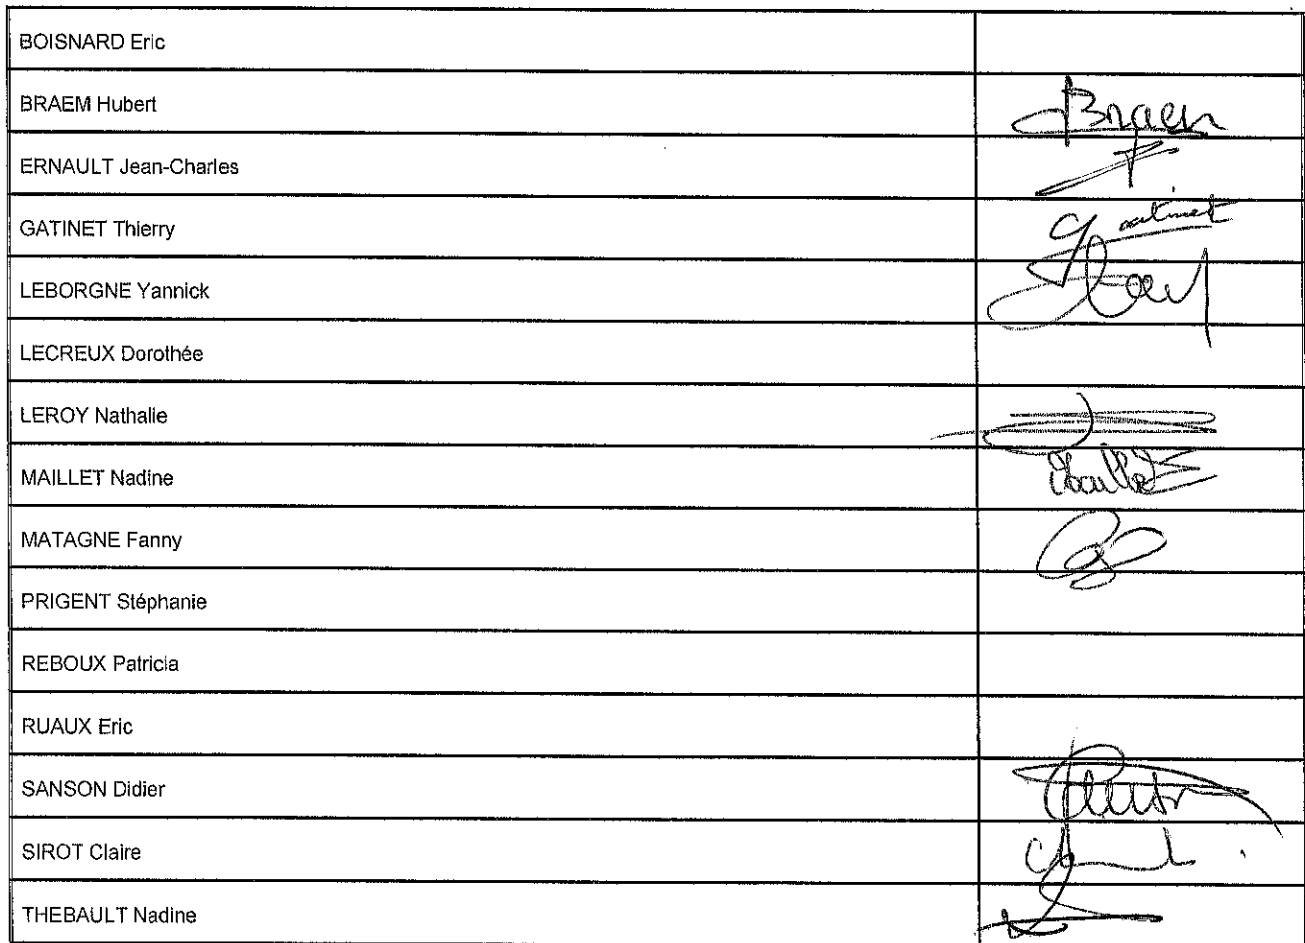 BOISNARD Eric
BRAEM Hubert
Braem
ERNAULT Jean-Charles
GATINET Thierry
Gatinet
LEBORGNE Yannick
LECREUX Dorothée
LEROY Nathalie
MAILLET Nadine
MATAGNE Fanny
PRIGENT Stéphanie
REBOUX Patricia
RUAUX Eric
SANSON Didier
SIROT Claire
THEBAULT Nadine